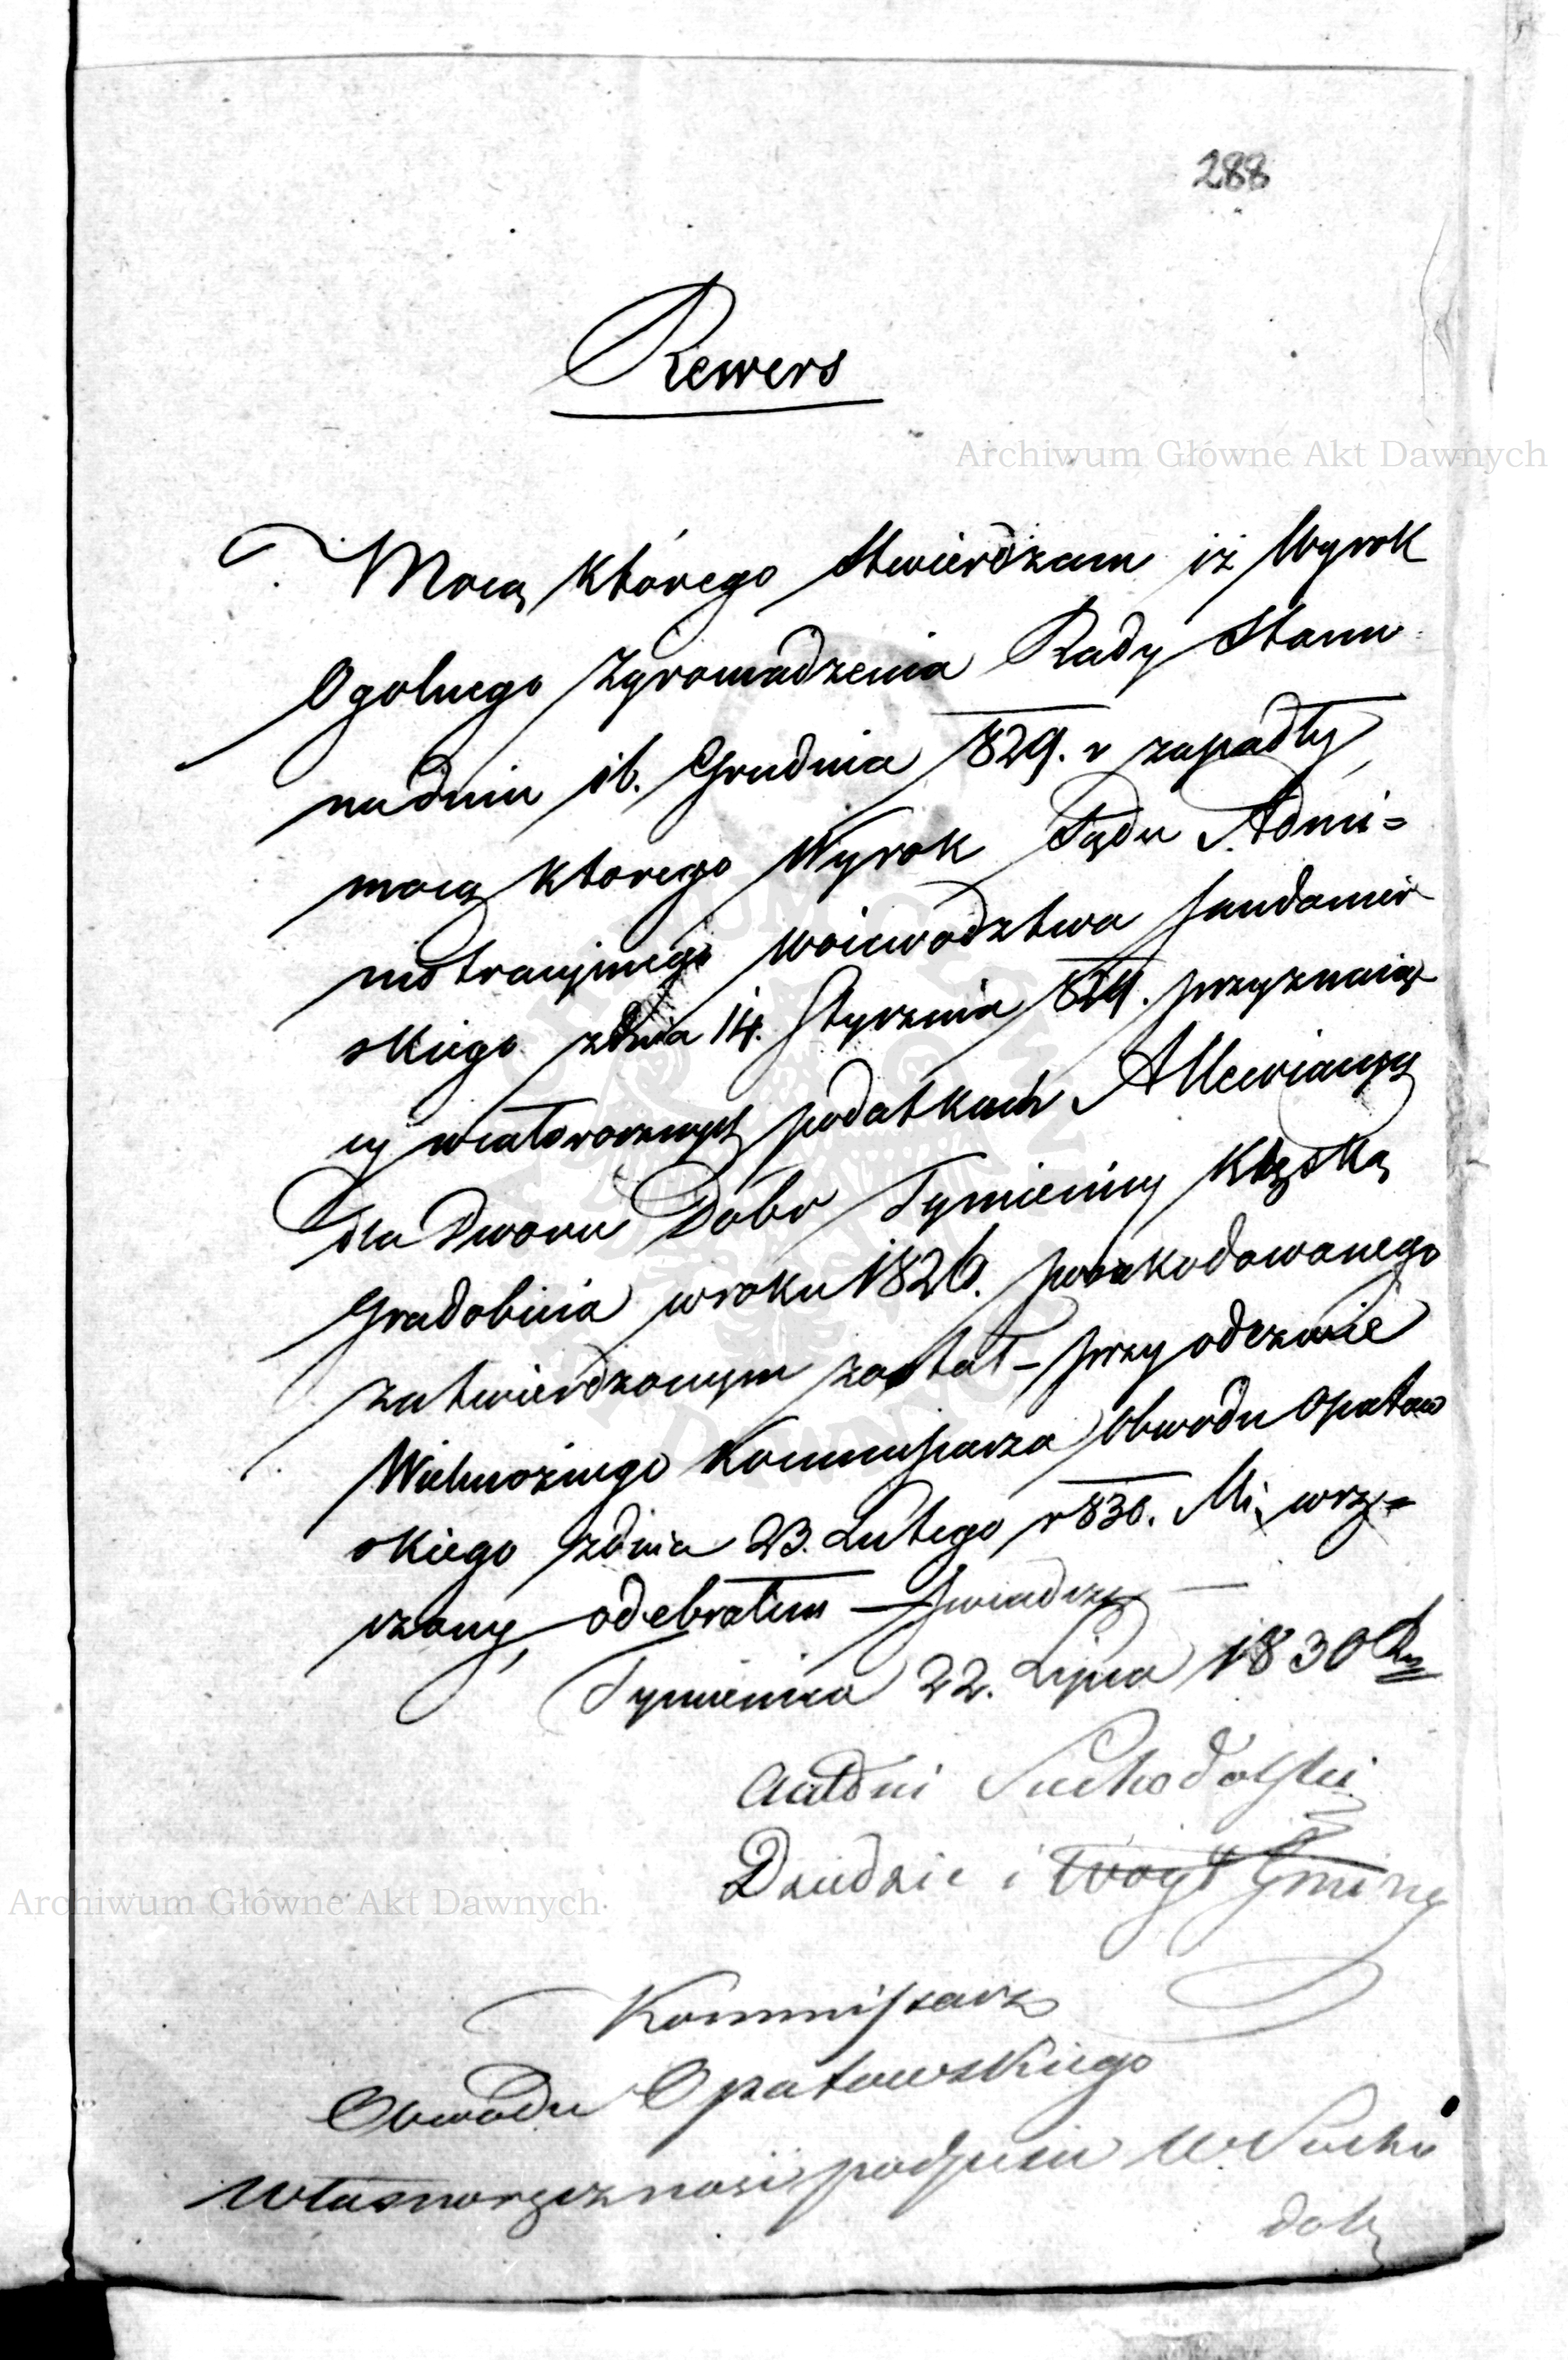 288
Rewers
Archiwum Główne Akt Dawnych
Mocą którego stwierdzam iż Wyrok
Ogolnego Zgromadzenia Rady Stanu
na dniu 16. Grudnia 829. r zapadły,
mocą ktorego Wyrok Sądu Admi=
nistracyjnego Woiewodztwa Sandomir
skiego zdnia 14. Stycznia 829. przyznaią
cy wcałorocznych podatkach Allewiacyą
dla Dworu Dobr Tymienicy Klęską
Gradobicia wroku 1826. poszkodowanego
zatwierdzonym został – przy odezwie
Wielmożnego Kommissarza Obwodu Opatow
skiego zdnia 23. Lutego r 830. Mi wrę=
czony, odebrałem – Swiadczę –
Tymienica 22. Lipca 1830 Ru
Antoni Suchodolski
Dziedzic i Woyt Gminy
Archiwum Główne Akt Dawnych
Kommissarz
Obwodu Opatowskiego
Własnoręcznosć podpisu W. Sucho
dols